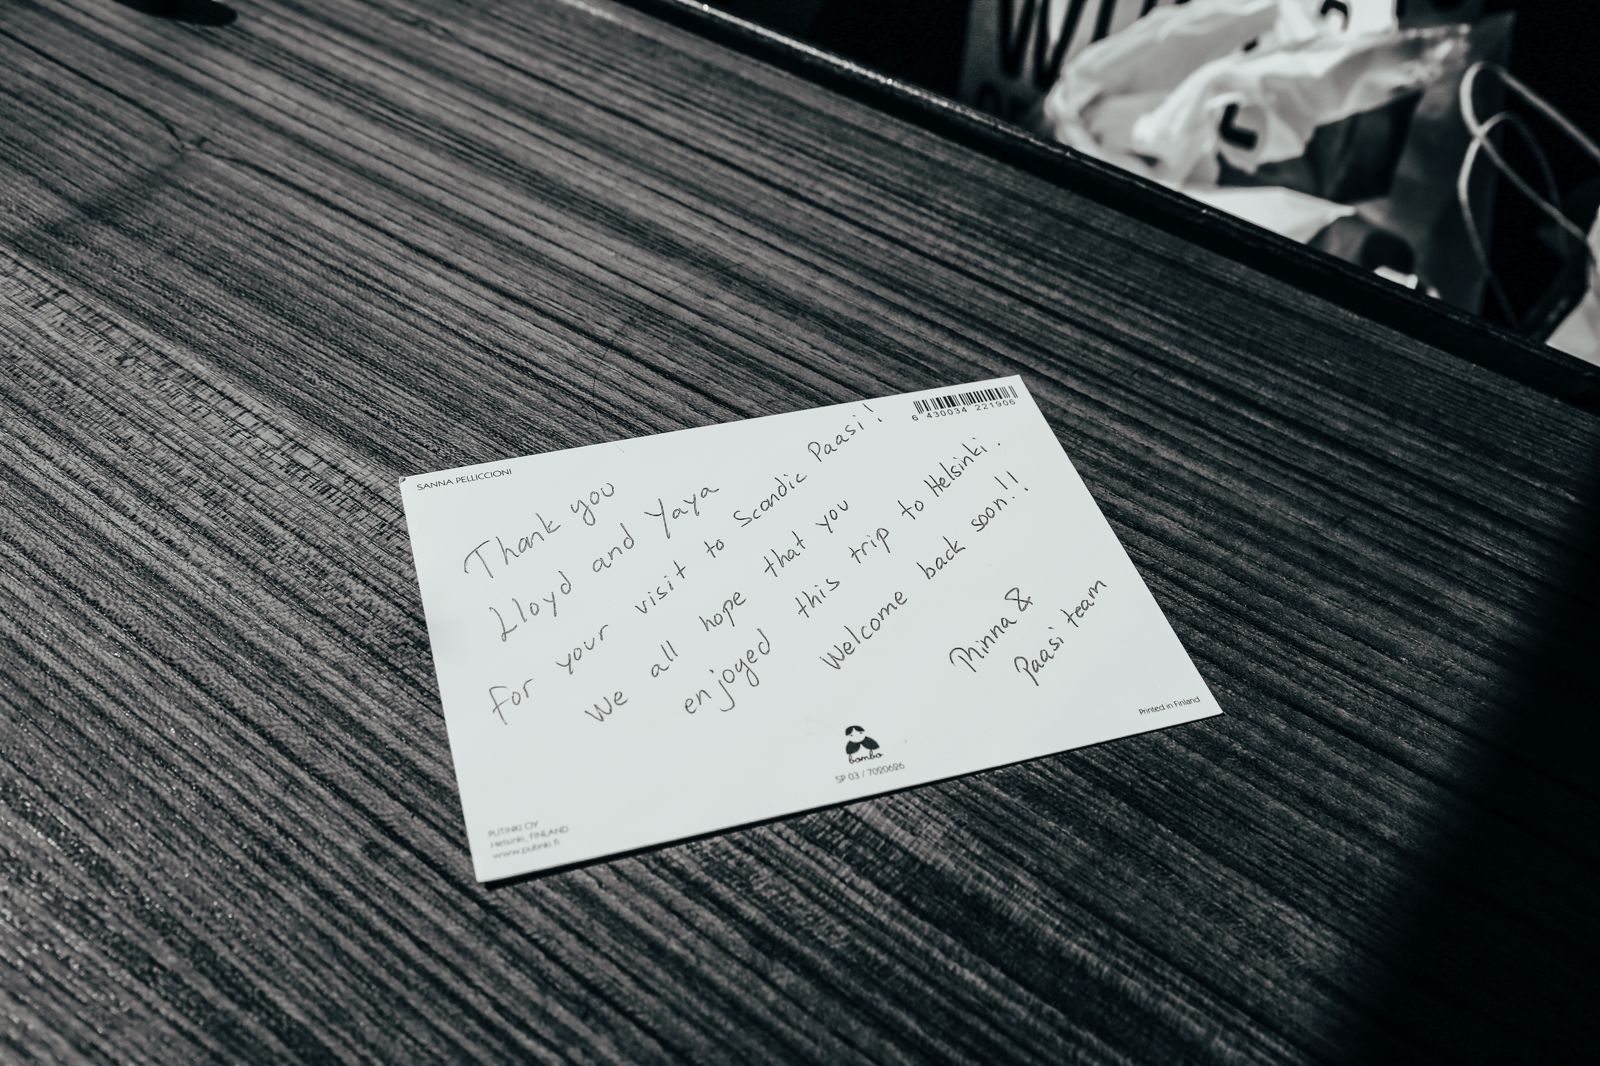 SANNA PELLICCIONI
6 430034 221906
Thank you
Lloyd and Yaya
For your visit to Scandic Paasi!
We all hope that you
enjoyed this trip to Helsinki.
Welcome back soon!!
Minna &
Paasi team
bombo
SP 03 / 7020626
Printed in Finland
PUTINKI OY
Helsinki, FINLAND
www.putinki.fi